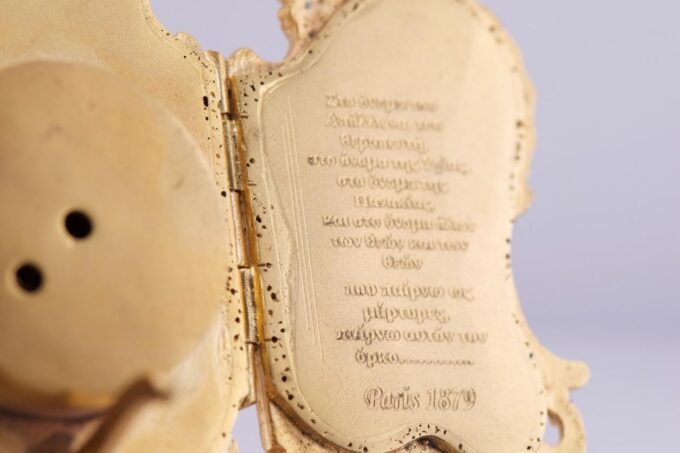 Στο όνομα του
Απόλλωνα του
θεραπευτή,
στο όνομα της Υγείας,
στο όνομα της
Πανακείας,
και στο όνομα όλων
των θεών και των
θεών
που παίρνω ως
μάρτυρες,
παίρνω αυτόν τον
όρκο............
Paris 1879